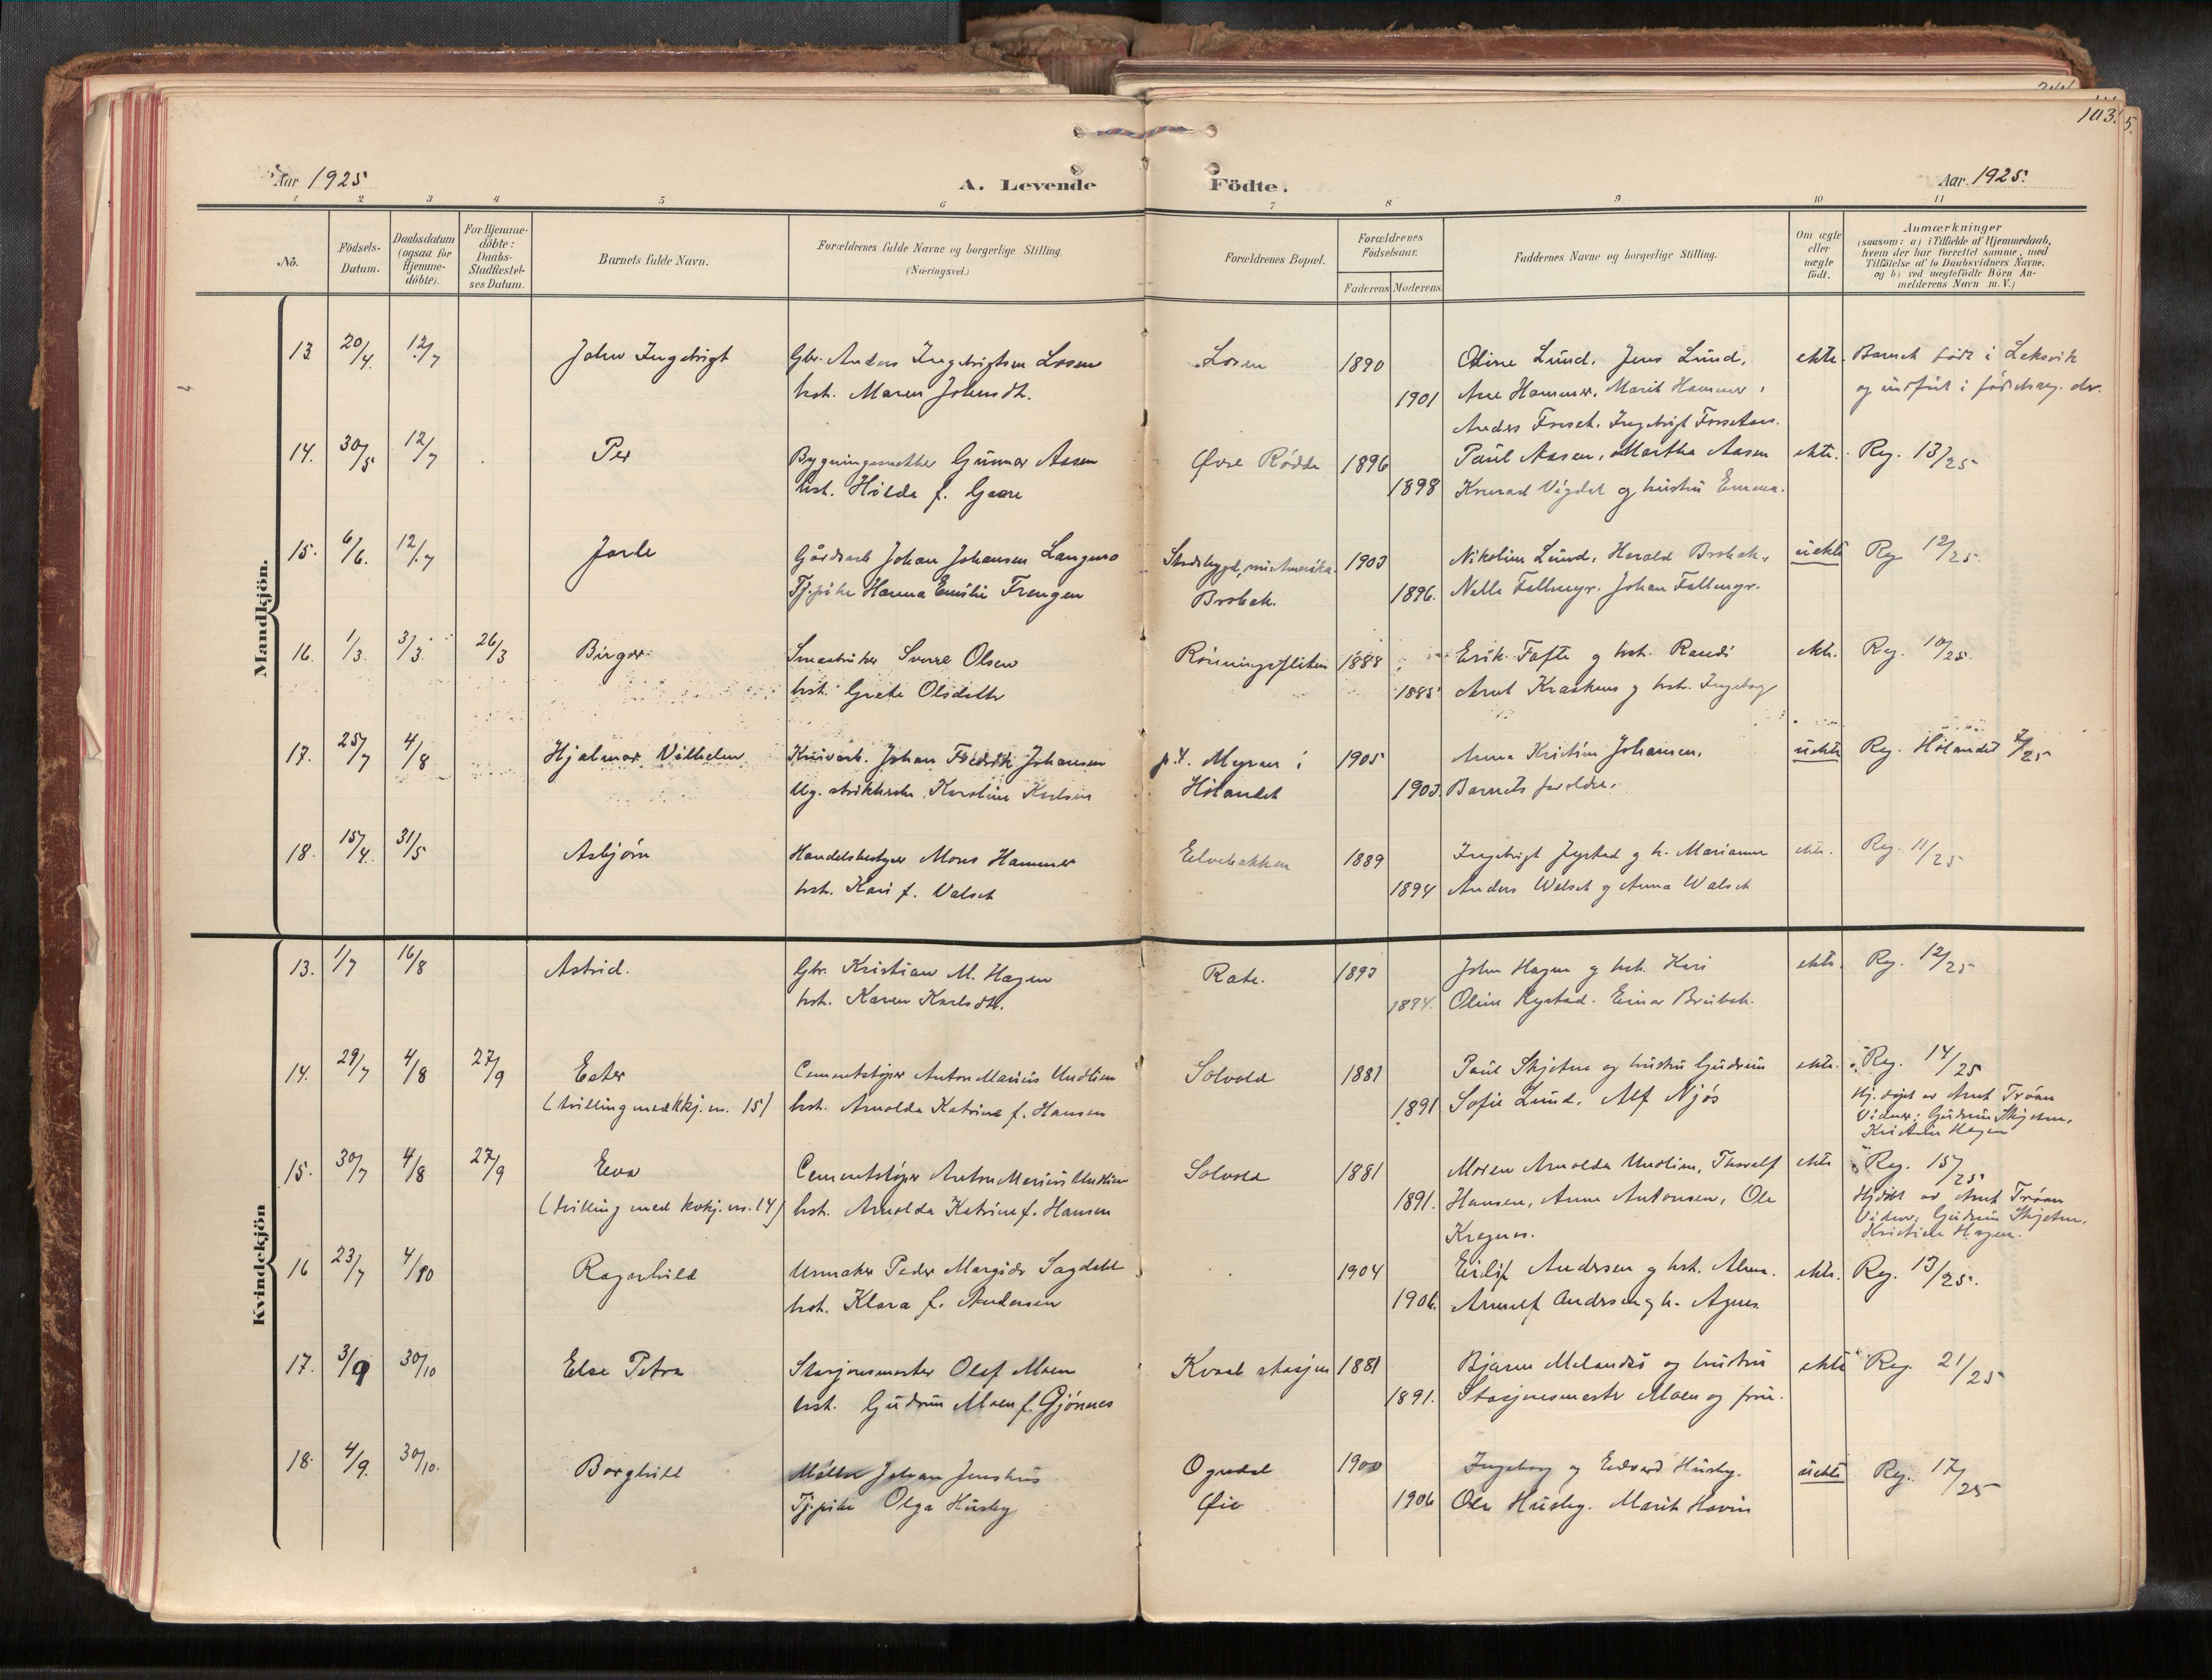 103.
5.
Aar 1925
A. Levende Födte.
Aar 1925.
1 2 3 4 5 6 7 8 9 10 11
No.
Födsels-Datum.
Daabsdatum (ogsaa for Hjemme-döbte).
For Hjemme-döbte: Daabs-Stadfæstel-ses Datum.
Barnets fulde Navn.
Forældrenes fulde Navne og borgerlige Stilling.
(Næringsvei.)
Forældrenes Bopæl.
Forældrenes Födselsaar.
Faderens Moderens
Faddernes Navne og borgerlige Stilling.
Om ægte eller uægte födt.
Anmærkninger
(saasom: a) i Tilfælde af Hjemmedaab,
hvem der har forrettet samme, med
Tilföielse af to Daabsvidners Navne.
og b) ved uægtefödte Börn An-
melderens Navn m. V.)
Mandkjön.
13 20/4. 12/7 John Ingebrigt Gbr. Anders Ingebrigtsen Losen Losen 1890 Oline Lund, Jens Lund, ekte. Barnet født i Leksvik
hst. Maren Johnsdt. 1901 Ane Hammer, Marit Hammer, og innført i fødselsreg. der.
Anders Forset. Ingebrigt
14. 30/5 12/7 Per Bygningssnekker Gunnar Aasen Øvre Rødde 1896 Paul Aasen, Martha Aasen ekte. Reg. 13/25
hst. Hilda f. Gaare 1898 Konrad Vigdal og hustru Emma.
15. 6/6. 12/7 Jarle Gårdsarb. Johan Johansen Langmo Stadsbygd, nu i Amerika. 1903 Nikoline Lund, Harald Brobak, uekte Reg 12/25.
Tj.pike Hanna Emilie Frengen Brobak. 1896. Nella Fallmyr. Johan Fallmyr.
16. 1/3. 3/3. 26/3 Birger. Småbruker Sverre Olsen Rønningsfletten 1888 Erik Tofte og hst. Randi ekte. Reg. 10/25.
hst. Grete Olsdatter 1885 Arnt Kraaknes og hst. Ingeborg
17. 25/7 4/8 Hjalmar Vilhelm Johan Fredrik Johansen p.t. Myran i 1905 Anna Kristine Johansen. uekte Reg. Hølandet 7/25
Ug. Karoline Karlsen Hølandet 1903. Barnets foreldre.
18. 15/4. 31/5 Asbjørn Handelsbestyrer Mons Hammer Elvebakken 1889 Ingebrigt Jystad og h. Marianne ekte. Reg. 11/25
hst. Kari f. Valset 1894 Anders Walset og Anna Walset
Kvindekjön
13. 1/7 16/8 Astrid. Gbr. Kristian M. Hagen Rate. 1893 John Hagen og hst. Kari ekte. Reg. 12/25
hst. Karen Karlsdtr. 1894. Oline Rystad. Einar Brubak.
14. 29/7 4/8 27/9 Ester Cementstøper Anton Marius Undlien Solvold 1881 Paul Skjetne og hustru Gudrun ekte. Reg. 14/25
(tvilling med kkj. nr. 15) hst. Arnolda Katrine f. Hansen 1891 Sofie Lund, Alf Njøs Hj. døpt av Arnt Trøan
Vidner: Gudrun Skjetne,
Kristine Hagen
15. 30/7 4/8 27/9 Eva Cementstøper Anton Marius Undlien Solvold 1881 Moren Arnolda Undlien, Thoralf ekte Reg. 15/25
(tvilling med kvkj. nr. 14) hst. Arnolda Katrine f. Hansen 1891. Hansen, Anne Antonsen, Ole Hjdøbt av Arnt Trøan
Kregnes. Vidner: Gudrun Skjetne,
Kristine Hagen.
16 23/7 4/10 Ragnhild Urmaker Peder Margido Sagdahl 1904 Eilif Andersen og hst. Alma. ekte. Reg. 13/25.
hst. Klara f. Andersen 1906. Arnulf Andersen og h. Agnes.
17. 3/9 30/10 Else Petra Stasjonsmester Olaf Moen Kvaal stasjon 1881 Bjarne Melandsø og hustru ekte Reg. 21/25
hst. Gudrun Moen f. Gjønnes 1891. Stasjonsmester Moen og frue.
18. 4/9. 30/10. Borghild Møller Johan Jenshus Ogndal 1900 Ingeborg og Edvard Husby. uekte Reg. 17/25
Tj.pike Olga Husby Øie 1906 Ole Husby. Marit Hovin